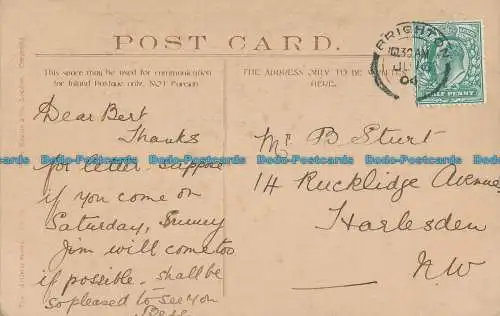 POST CARD.
This space may be used for communication
for Inland Postage only, NOT Foreign.
THE ADDRESS ONLY TO BE
HERE.
BRIGHTON
10.30 AM
JU
04
HALF PENNY
Dear Bert
Thanks
for letter. Suppose
if you come on
Saturday,
Jim will come too
if possible. shall be
so pleased to see you
Mr B Sturt
14 Rucklidge Avenue
Harlesden
N.W
Dodo-Postcards Dodo-Postcards Dodo-Postcards Dodo-Postcards